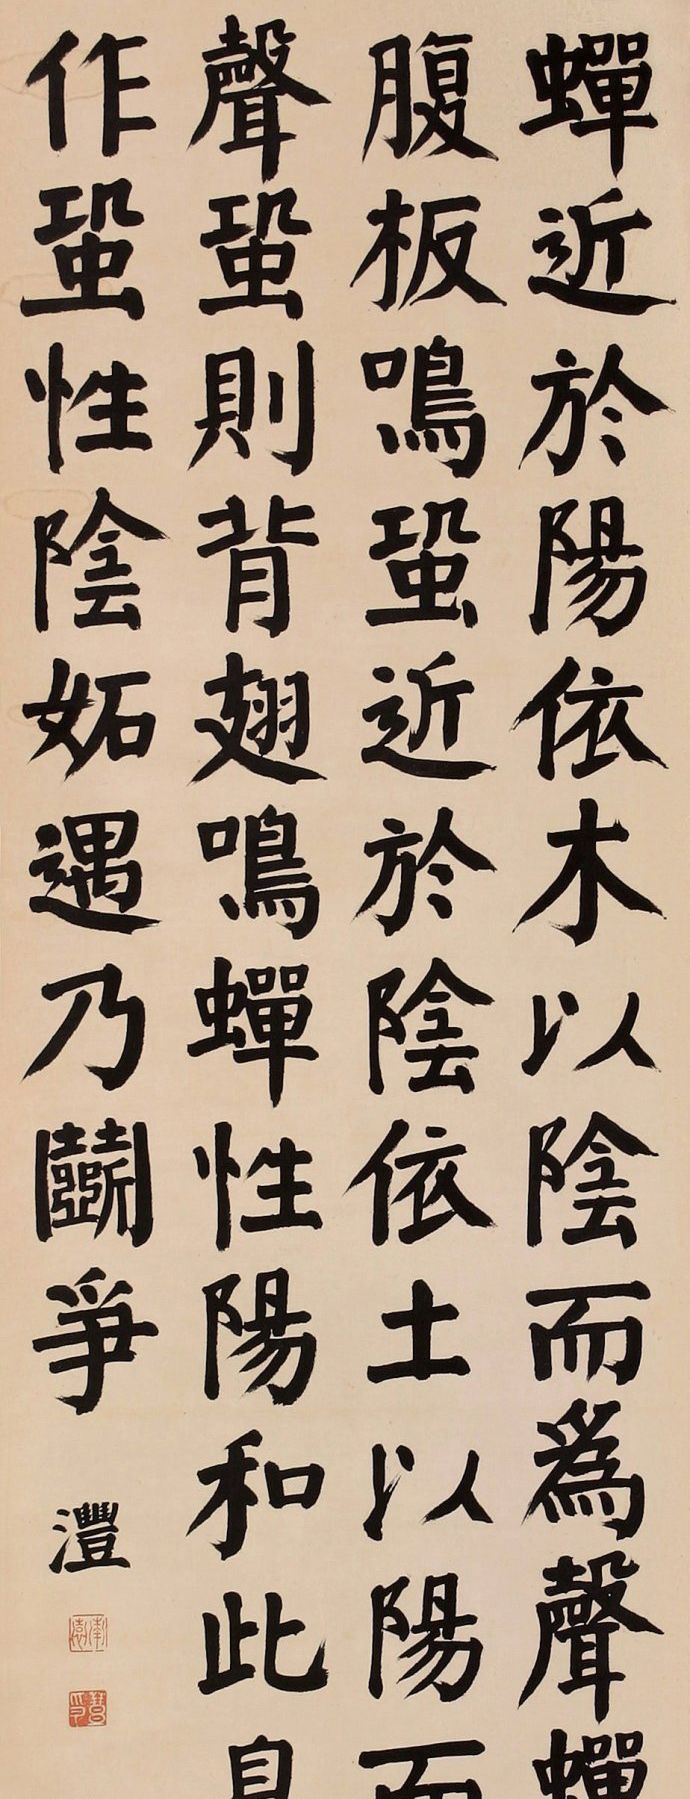 蟬近於陽依木以陰而為聲蟬
腹板鳴蛩近於陰依土以陽而
聲蛩則背翅鳴蟬性陽和此息
作蛩性陰妬遇乃鬭爭
灃